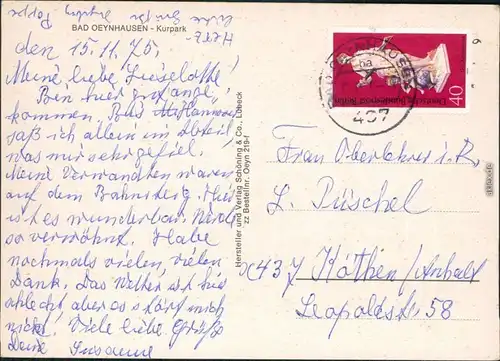 BAD OEYNHAUSEN - Kurpark
den 15.11.75.
Meine liebe Lieselotte!
Bin hier gut ange-
kommen. Bis Hannover
saß ich allein im Abteil
was mir sehr gefiel.
Meine Verwandten waren
auf dem Bahnsteig. Hier
ist es wunderbar. Werde
so verwöhnt. Habe
nochmals vielen, vielen
Dank. Das Wetter ist hier
schlecht, aber es stört mich
nicht. Viele liebe Grüße
Deine Susanne
Hersteller und Verlag Schöning & Co., Lübeck
zz Bestellnr. Oeyn 219-f
Deutsche Bundespost Berlin
40
497
Frau Oberlehrer i. R.
L. Püschel
X437 Köthen/Anhalt
Leopoldstr. 58